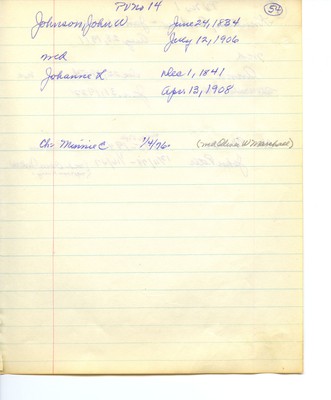 PV No 14
54
Johnson, John W June 24, 1834
July 12, 1906
md
Johanne L Dec 1, 1841
Apr. 13, 1908
Ch: Minnie C 1/4/76 (md Oliver W Marshall)